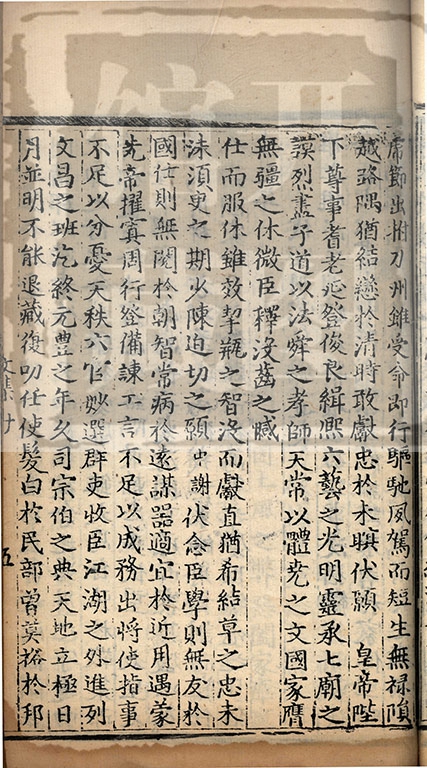 虎節出拊刀州雖受命即行驅馳夙駕而短生無祿隕
越路隅猶結戀於清時敢獻忠於未瞑伏願 皇帝陛
下尊事耆老延登俊良緝熙六藝之光明靈承七廟之
謨烈盡子道以法舜之孝師天常以體堯之文國家膺
無疆之休微臣釋沒齒之憾
仕而服休雖效挈瓶之智沒而獻直猶希結草之忠未
沬須臾之期少陳迫切之願中謝伏念臣學則無友於
國仕則無閥於朝智常病於遠謀器適宜於近用遇蒙
先帝擢寘周行登備諫工言不足以成務出將使指事
不足以分憂天秩六官妙選群吏收臣江湖之外進列
文昌之班汔終元豐之年久司宗伯之典天地立極日
月並明不能退藏復叨任使髮白於民部曾莫裕於邦
文集廿
五